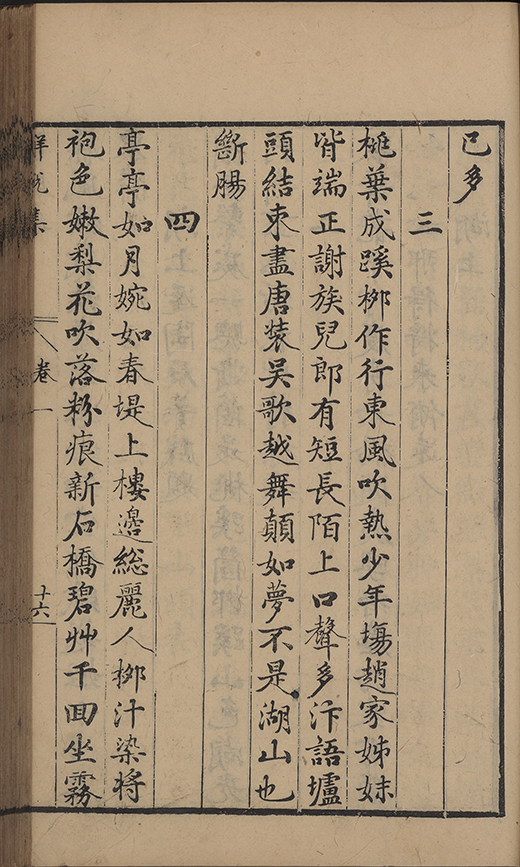 已多
三
桃葉成蹊栁作行東風吹熱少年塲趙家姊妹
皆端正謝族兒郎有短長陌上口聲多汴語壚
頭結束盡唐裝吴歌越舞顛如夢不是湖山也
斷腸
四
亭亭如月婉如春堤上樓邊緫麗人栁汁染將
袍色嫩梨花吹落粉痕新石橋碧艸千回坐霧
卷一
十六